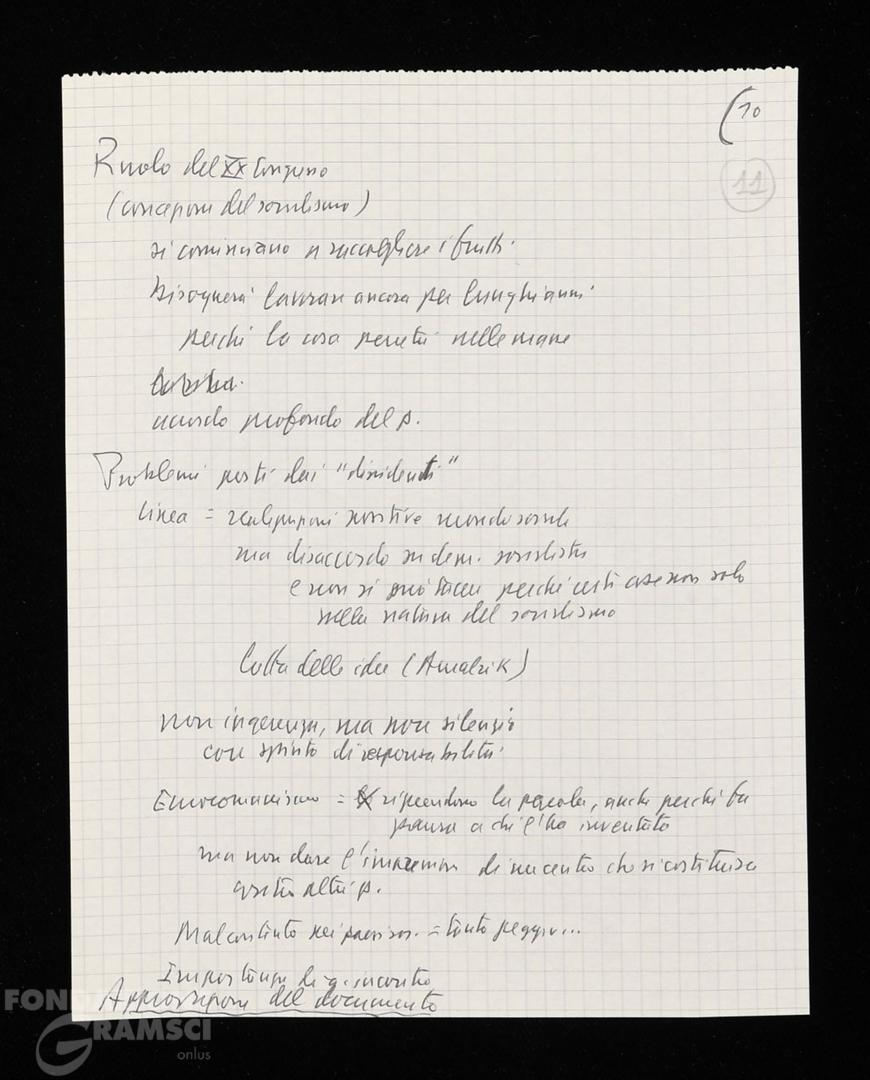 (10
11
Ruolo del XX Congresso
(concezione del socialismo)
si cominciano a raccogliere i frutti.
Bisognerà lavorare ancora per lunghi anni
perché la cosa penetri nelle masse
accordo profondo del p.
Problemi posti dai "dissidenti"
linea = realizzazioni positive mondo social.
ma disaccordo su dem. socialista
e non si può tacere perché certe cose non solo
nella natura del socialismo
lotta delle idee (Amalrik)
non ingerenza, ma non silenzio
con spirito di responsabilità.
Eurocomunismo = riprendono la parola, anche perché fa
paura a chi l'ha inventato
ma non dare l'impressione di un centro che si costituisca
contro altri p.
Malcontento nei paesi soc. = tanto peggio...
Importanza di q. incontro
Approvazione del documento
FONDA
GRAMSCI
onlus